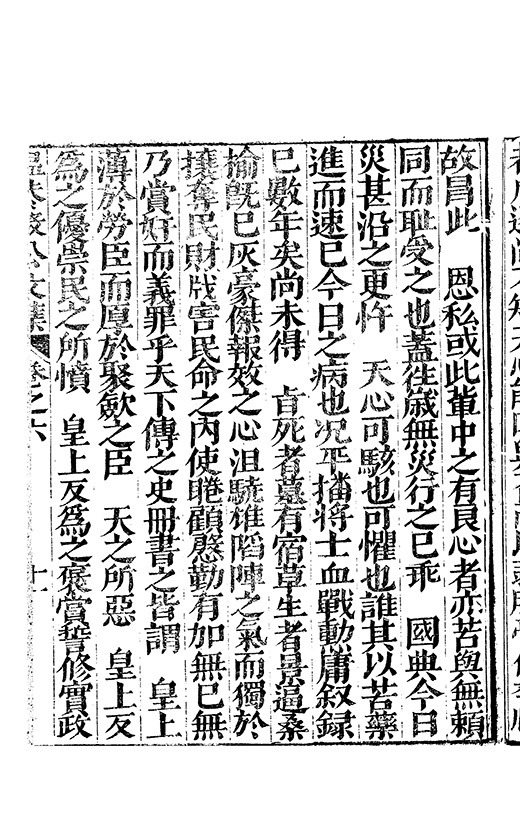 故冒此　恩私或此輩中之有良心者亦苦與無賴
同而耻受之也蓋往歲無災行之已乖　國典今日
災甚沿之更忤　天心可駭也可懼也誰其以苦藥
進而速已今日之病也况平播將士血戰勲庸叙録
已數年矣尚未得　㫖死者墓有宿草生者景逼桑
榆旣已灰豪傑報效之心沮驍雄陷陣之氣而獨於
攘奪民財戕害民命之內使睠顧慇勤有加無已無
乃賞奸而義罪乎天下傳之史冊書之皆謂　皇上
薄於勞臣而厚於聚歛之臣　天之所惡　皇上反
爲之優崇民之所憤　皇上反爲之褒賞誓修實政
文集　卷之六　十一